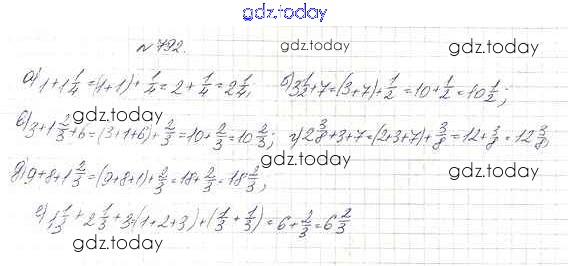 gdz.today
№ 792.
gdz.today
gdz.today
а) 1+1 1/4 = (1+1)+ 1/4 = 2+ 1/4 = 2 1/4; б) 3 1/2 +7 = (3+7)+ 1/2 = 10+ 1/2 = 10 1/2;
gdz.today
в) 3+1 2/3 +6 = (3+1+6)+ 2/3 = 10+ 2/3 = 10 2/3; г) 2 3/8 +3+7 = (2+3+7)+ 3/8 = 12+ 3/8 = 12 3/8;
gdz.today
gdz.today
д) 9+8+1 2/3 = (9+8+1)+ 2/3 = 18+ 2/3 = 18 2/3;
е) 1 1/3 + 2 1/3 + 3 = (1+2+3)+( 1/3 + 1/3 ) = 6+ 2/3 = 6 2/3
gdz.today
gdz.today